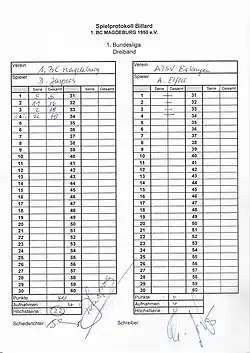 Spielprotokoll Billard
1. BC MAGDEBURG 1950 e.V.
1. Bundesliga
Dreiband
Verein 1. BC Magdeburg
Spieler D. Jaspers
Serie Gesamt Serie Gesamt
1 5 5 31
2 11 16 32
3 2 18 33
4 22 40 34
5 35
6 36
7 37
8 38
9 39
10 40
11 41
12 42
13 43
14 44
15 45
16 46
17 47
18 48
19 49
20 50
21 51
22 52
23 53
24 54
25 55
26 56
27 57
28 58
29 59
30 60
Punkte 40
Aufnahmen 4
Höchstserie 22
Schiedsrichter
Verein ATSV Erlangen
Spieler A. Efler
Serie Gesamt Serie Gesamt
1 – 31
2 – 32
3 – 33
4 – 34
5 35
6 36
7 37
8 38
9 39
10 40
11 41
12 42
13 43
14 44
15 45
16 46
17 47
18 48
19 49
20 50
21 51
22 52
23 53
24 54
25 55
26 56
27 57
28 58
29 59
30 60
Punkte 0
Aufnahmen 4
Höchstserie 0
Schreiber: